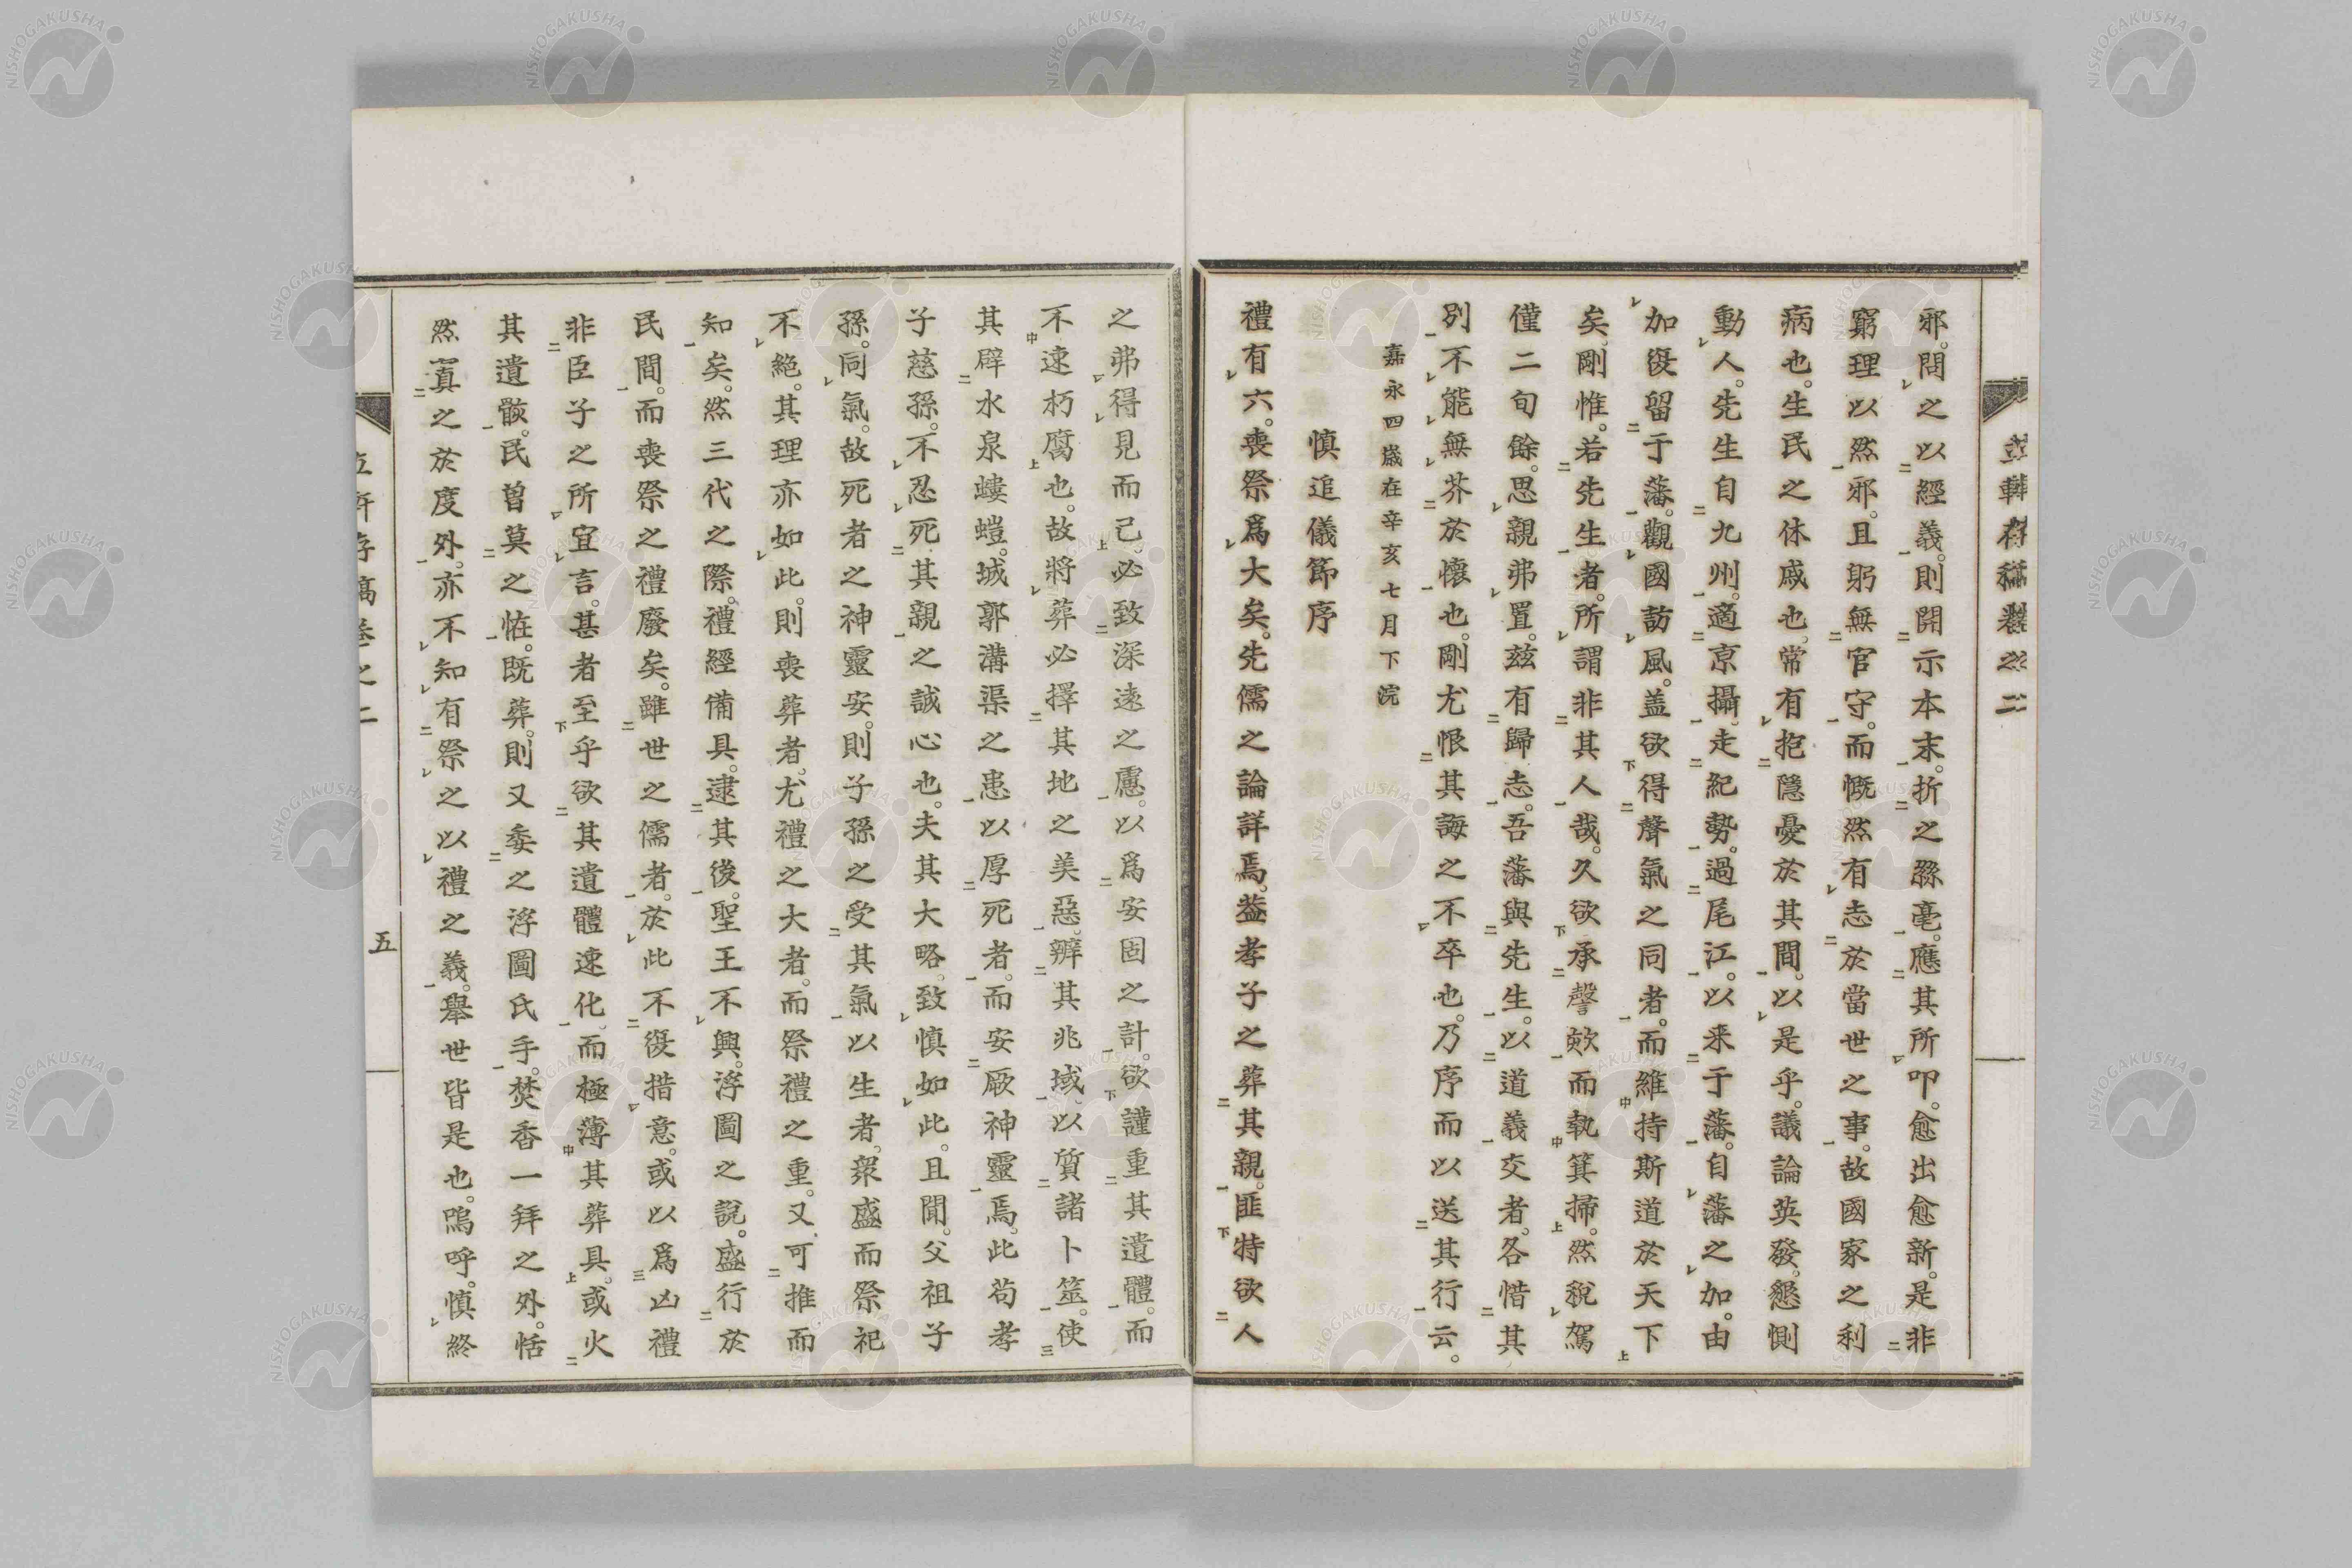 邪。問之以經義。則開示本末。折之繇毫。應其所叩。愈出愈新。是非
窮理以然邪。且躬無官守。而慨然有志於當世之事。故國家之利
病也。生民之休戚也。常有抱隱憂於其間。以是乎。議論英發。懇惻
動人。先生自九州。適京攝。走紀勢。過尾江。以来于藩。自藩之加。由
加復留于藩。觀國訪風。蓋欲得聲氣之同者。而維持斯道於天下
矣。剛惟。若先生者。所謂非其人哉。久欲承謦欬而執箕掃。然稅駕
僅二旬餘。思親弗置。兹有歸志。吾藩與先生。以道義交者。各惜其
別。不能無芥於懷也。剛尤恨其誨之不卒也。乃序而以送其行云。
嘉永四歳在辛亥七月下浣
慎追儀節序
禮有六。喪祭爲大矣。先儒之論詳焉。葢孝子之葬其親。匪特欲人
之弗得見而已。必致深遠之慮。以爲安固之計。欲謹重其遺體。而
不速朽腐也。故將葬必擇其地之美惡。辨其兆域。以質諸卜筮。使
其辟水泉螻螘。城郭溝渠之患。以厚死者。而安厥神靈焉。此苟孝
子慈孫。不忍死其親之誠心也。夫其大略。致慎如此。且聞。父祖子
孫。同氣。故死者之神靈安。則子孫之受其氣以生者。衆盛而祭祀
不絶。其理亦如此。則喪葬者。尤禮之大者。而祭禮之重。又可推而
知矣。然三代之際。禮經備具。逮其後。聖王不興。浮圖之説。盛行於
民間。而喪祭之禮廢矣。雖世之儒者。於此不復措意。或以爲凶禮
非臣子之所宜言。甚者至乎欲其遺體速化。而極薄其葬具。或火
其遺骸。民曽莫之恠。既葬。則又委之浮圖氏手。焚香一拜之外。恬
然寘之於度外。亦不知有祭之以禮之義。舉世皆是也。嗚呼。慎終
五